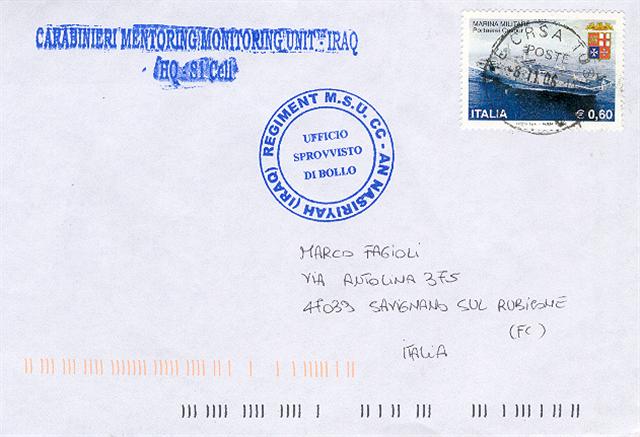 CARABINIERI MENTORING MONITORING UNIT - IRAQ
HQ - S1 Cell
MARINA MILITARE
Portaerei Cavour
ITALIA
€ 0,60
POSTE
REGIMENT M.S.U. CC - AN NASIRIYAH (IRAQ)
UFFICIO
SPROVVISTO
DI BOLLO
MARCO FAGIOLI
VIA ANTOLINA 375
47039 SAVIGNANO SUL RUBICONE
(FC)
ITALIA